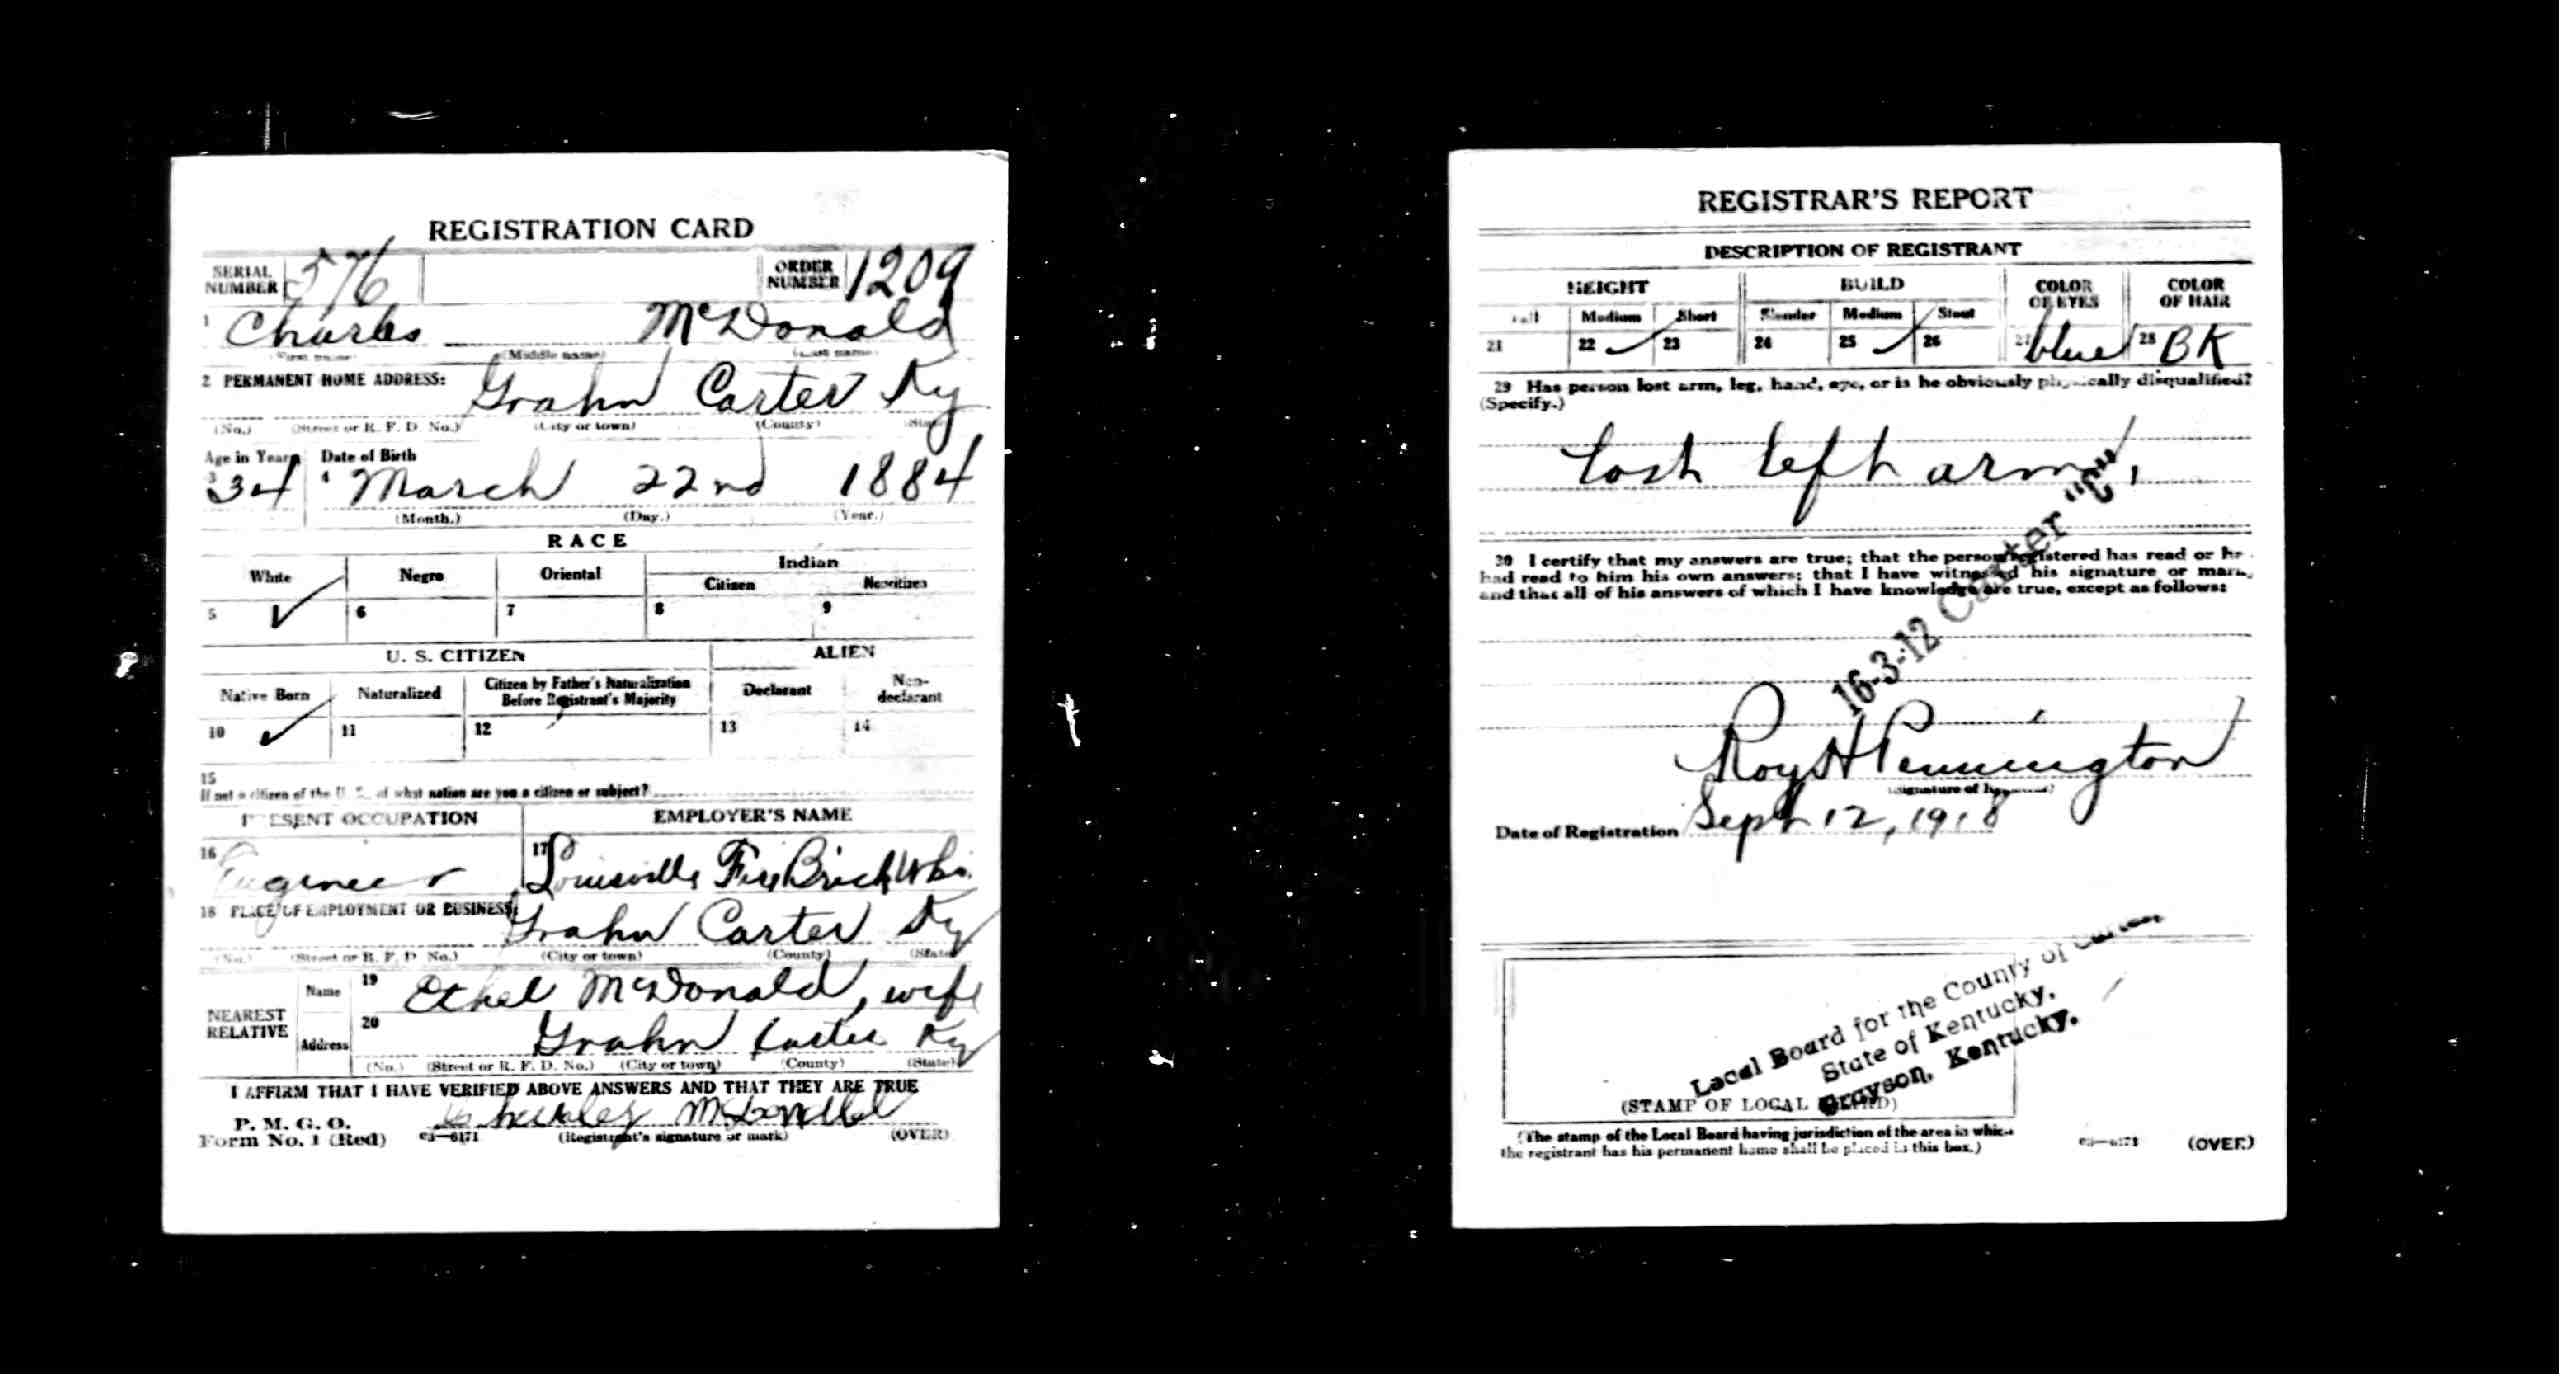 REGISTRATION CARD
SERIAL NUMBER 576 ORDER NUMBER 1209
1 Charles McDonald
(First name) (Middle name) (Last name)
2 PERMANENT HOME ADDRESS: Grahn Carter Ky
(No.) (Street or R. F. D. No.) (City or town) (County) (State)
Age in Years Date of Birth
3 34 4 March 22nd 1884
(Month.) (Day.) (Year.)
RACE
White Negro Oriental Indian
Citizen Noncitizen
5 ✓ 6 7 8 9
U. S. CITIZEN ALIEN
Native Born Naturalized Citizen by Father's Naturalization Before Registrant's Majority Declarant Non-declarant
10 ✓ 11 12 13 14
15
If not a citizen of the U. S., of what nation are you a citizen or subject?
PRESENT OCCUPATION EMPLOYER'S NAME
16 Engineer 17 Louisville Fire Brick Wks.
18 PLACE OF EMPLOYMENT OR BUSINESS: Grahn Carter Ky
(No.) (Street or R. F. D. No.) (City or town) (County) (State)
NEAREST RELATIVE Name 19 Ethel McDonald, wife
Address 20 Grahn Carter Ky
(No.) (Street or R. F. D. No.) (City or town) (County) (State)
I AFFIRM THAT I HAVE VERIFIED ABOVE ANSWERS AND THAT THEY ARE TRUE
P. M. G. O.
Form No. 1 (Red) 03—6171 (Registrant's signature or mark) (OVER)
REGISTRAR'S REPORT
DESCRIPTION OF REGISTRANT
HEIGHT BUILD COLOR OF EYES COLOR OF HAIR
Tall Medium Short Slender Medium Stout
21 22 ✓ 23 24 25 ✓ 26 27 blue 28 BK
29 Has person lost arm, leg, hand, eye, or is he obviously physically disqualified?
(Specify.)
Lost left arm,
30 I certify that my answers are true; that the person registered has read or has
had read to him his own answers; that I have witnessed his signature or mark,
and that all of his answers of which I have knowledge are true, except as follows:
16-3-12 Carter "C"
Roy H Pennington
(Signature of Registrar)
Date of Registration Sept 12, 1918
Local Board for the County of Carter
State of Kentucky,
Grayson, Kentucky.
(STAMP OF LOCAL BOARD)
(The stamp of the Local Board having jurisdiction of the area in which
the registrant has his permanent home shall be placed in this box.)
03—6171 (OVER)